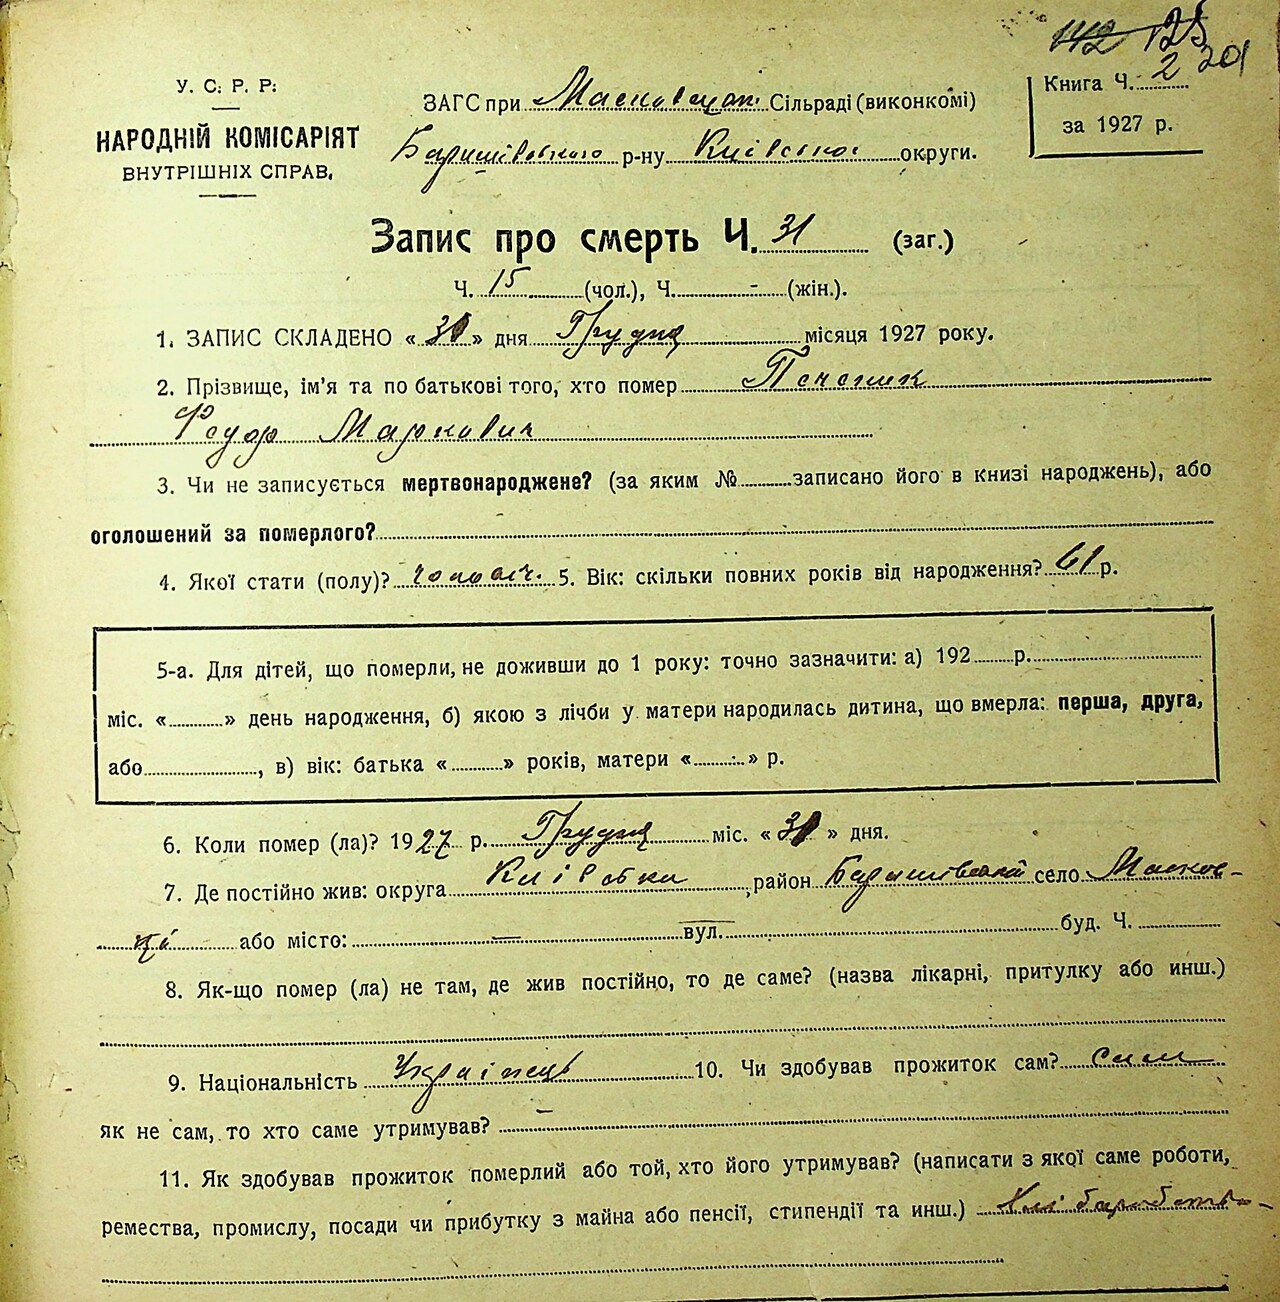 142 125
201
У. С. Р. Р.
НАРОДНІЙ КОМІСАРІЯТ
ВНУТРІШНІХ СПРАВ.
ЗАГС при Масковецькій Сільраді (виконкомі)
Баришівського р-ну Київської округи.
Книга Ч. 2
за 1927 р.
Запис про смерть Ч. 31 (заг.)
Ч. 15 (чол.), Ч. - (жін.).
1. ЗАПИС СКЛАДЕНО « » дня Грудня місяця 1927 року.
2. Прізвище, ім'я та по батькові того, хто помер
Федор Маркович
3. Чи не записується мертвонароджене? (за яким № записано його в книзі народжень), або
оголошений за померлого?
4. Якої стати (полу)? чоловіч. 5. Вік: скільки повних років від народження? 61 р.
5-а. Для дітей, що померли, не доживши до 1 року: точно зазначити: а) 192 р.
міс. « » день народження, б) якою з лічби у матери народилась дитина, що вмерла: перша, друга,
або , в) вік: батька « » років, матери « » р.
6. Коли помер (ла)? 1927 р. Грудня міс. « » дня.
7. Де постійно жив: округа Київська, район Баришівський село Масков-
ці або місто: — вул. буд. Ч.
8. Як-що помер (ла) не там, де жив постійно, то де саме? (назва лікарні, притулку або инш.)
9. Національність Українець 10. Чи здобував прожиток сам? сам
як не сам, то хто саме утримував? —
11. Як здобував прожиток померлий або той, хто його утримував? (написати з якої саме роботи,
ремества, промислу, посади чи прибутку з майна або пенсії, стипендії та инш.)